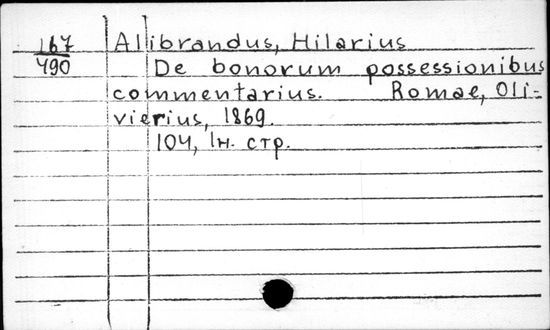 167 Alibrandus, Hilarius
490 De bonorum possessionibus
commentarius. Romae, Oli-
vierius, 1869.
104, 1н. стр.